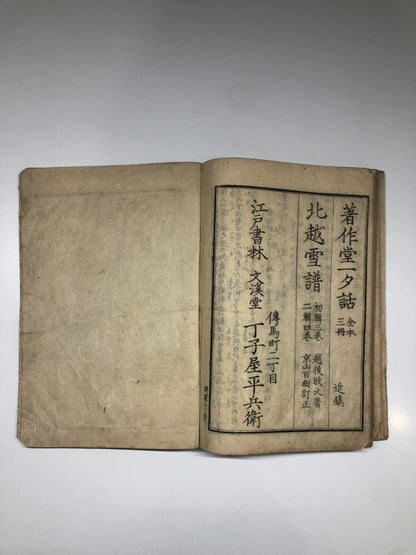 著作堂一夕話 全本三冊 近鐫
北越雪譜 初輯三卷 越後牧之著
二輯四卷 京山百樹訂正
傳馬町二丁目
江戸書林 文溪堂 丁子屋平兵衛